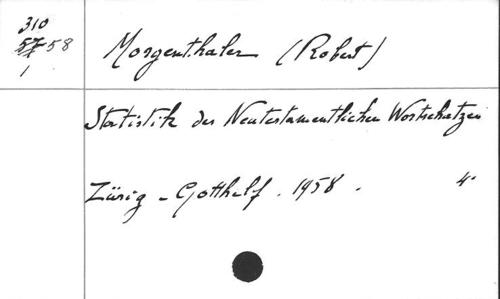 310
57 58
1
Morgenthaler (Robert)
Statistik des Neutestamentlichen Wortschatzes
Zürig - Gotthelf . 1958 . 4°